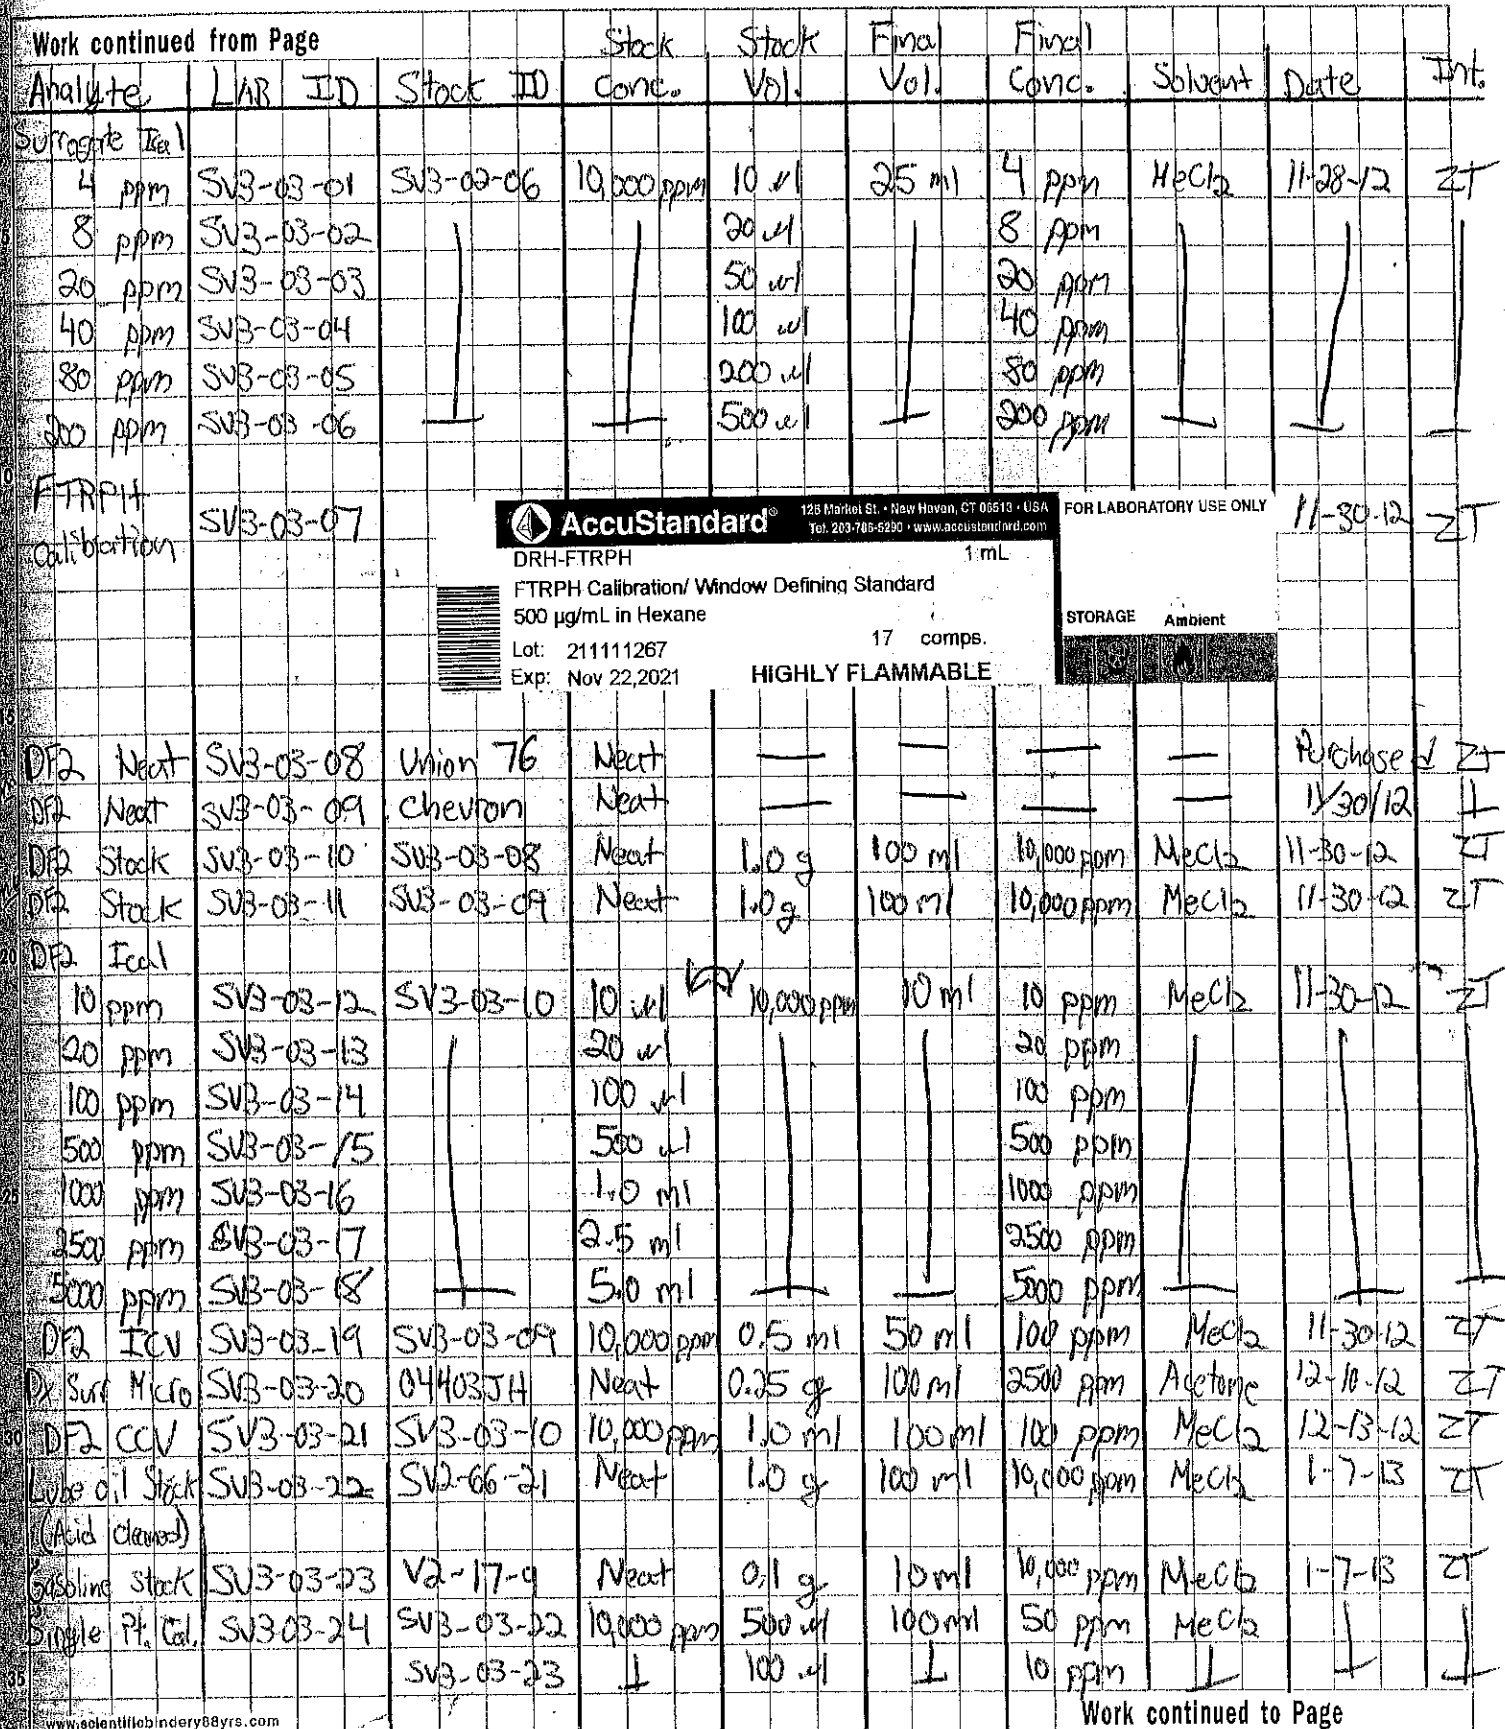 Work continued from Page
Stock Stock Final Final
Analyte LAB ID Stock ID Conc. Vol. Vol. Conc. Solvent Date Int.
Surrogate Ical
4 ppm SV3-03-01 SV3-02-06 10,000 ppm 10 ul 25 ml 4 ppm MeCl2 11-28-12 ZT
8 ppm SV3-03-02 20 ul 8 ppm
20 ppm SV3-03-03 50 ul 20 ppm
40 ppm SV3-03-04 100 ul 40 ppm
80 ppm SV3-03-05 200 ul 80 ppm
200 ppm SV3-03-06 500 ul 200 ppm
FTRPH
Calibration SV3-03-07 11-30-12 ZT
AccuStandard® 125 Market St. • New Haven, CT 06513 • USA
Tel. 203-786-5290 • www.accustandard.com
FOR LABORATORY USE ONLY
DRH-FTRPH 1 mL
FTRPH Calibration/ Window Defining Standard
500 µg/mL in Hexane
STORAGE Ambient
Lot: 211111267 17 comps.
Exp: Nov 22,2021 HIGHLY FLAMMABLE
DF2 Neat SV3-03-08 Union 76 Neat — — — — Purchased ZT
DF2 Neat SV3-03-09 Chevron Neat — — — — 11/30/12
DF2 Stock SV3-03-10 SV3-03-08 Neat 1.0 g 100 ml 10,000 ppm MeCl2 11-30-12 ZT
DF2 Stock SV3-03-11 SV3-03-09 Neat 1.0 g 100 ml 10,000 ppm MeCl2 11-30-12 ZT
DF2 Ical
10 ppm SV3-03-12 SV3-03-10 10 ul 10,000 ppm 10 ml 10 ppm MeCl2 11-30-12 ZT
20 ppm SV3-03-13 20 ul 20 ppm
100 ppm SV3-03-14 100 ul 100 ppm
500 ppm SV3-03-15 500 ul 500 ppm
1000 ppm SV3-03-16 1.0 ml 1000 ppm
2500 ppm SV3-03-17 2.5 ml 2500 ppm
5000 ppm SV3-03-18 5.0 ml 5000 ppm
DF2 ICV SV3-03-19 SV3-03-09 10,000 ppm 0.5 ml 50 ml 100 ppm MeCl2 11-30-12 ZT
Dx Surr Micro SV3-03-20 04403JH Neat 0.25 g 100 ml 2500 ppm Acetone 12-10-12 ZT
30 DF2 CCV SV3-03-21 SV3-03-10 10,000 ppm 1.0 ml 100 ml 100 ppm MeCl2 12-13-12 ZT
Lube oil Stock SV3-03-22 SV2-66-21 Neat 1.0 g 100 ml 10,000 ppm MeCl2 1-7-13 ZT
(Acid cleaned)
Gasoline Stock SV3-03-23 V2-17-9 Neat 0.1 g 10 ml 10,000 ppm MeCl2 1-7-13 ZT
Single Pt. Cal. SV3-03-24 SV3-03-22 10,000 ppm 500 ul 100 ml 50 ppm MeCl2
35 SV3-03-23 100 ul 10 ppm
Work continued to Page
www.scientificbindery88yrs.com